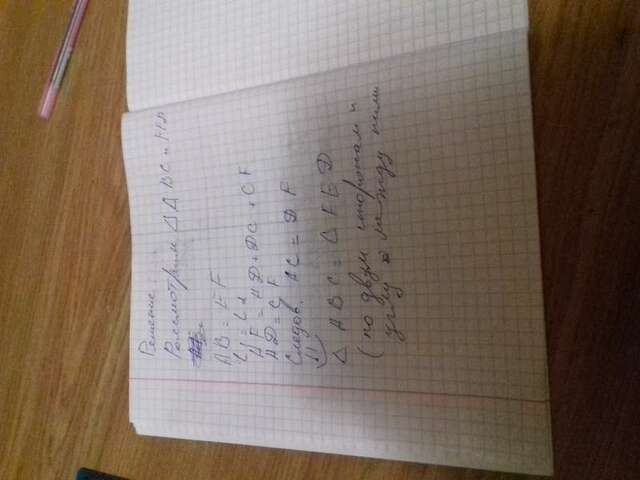 Решение
Рассмотрим ΔΔ ABC и FED
AB = EF
∠1 = ∠2
AF = AD + DC + CF
AD = CF
Следов. AC = DF
Δ ABC = Δ FED
(по двум сторонам и
углу между ними